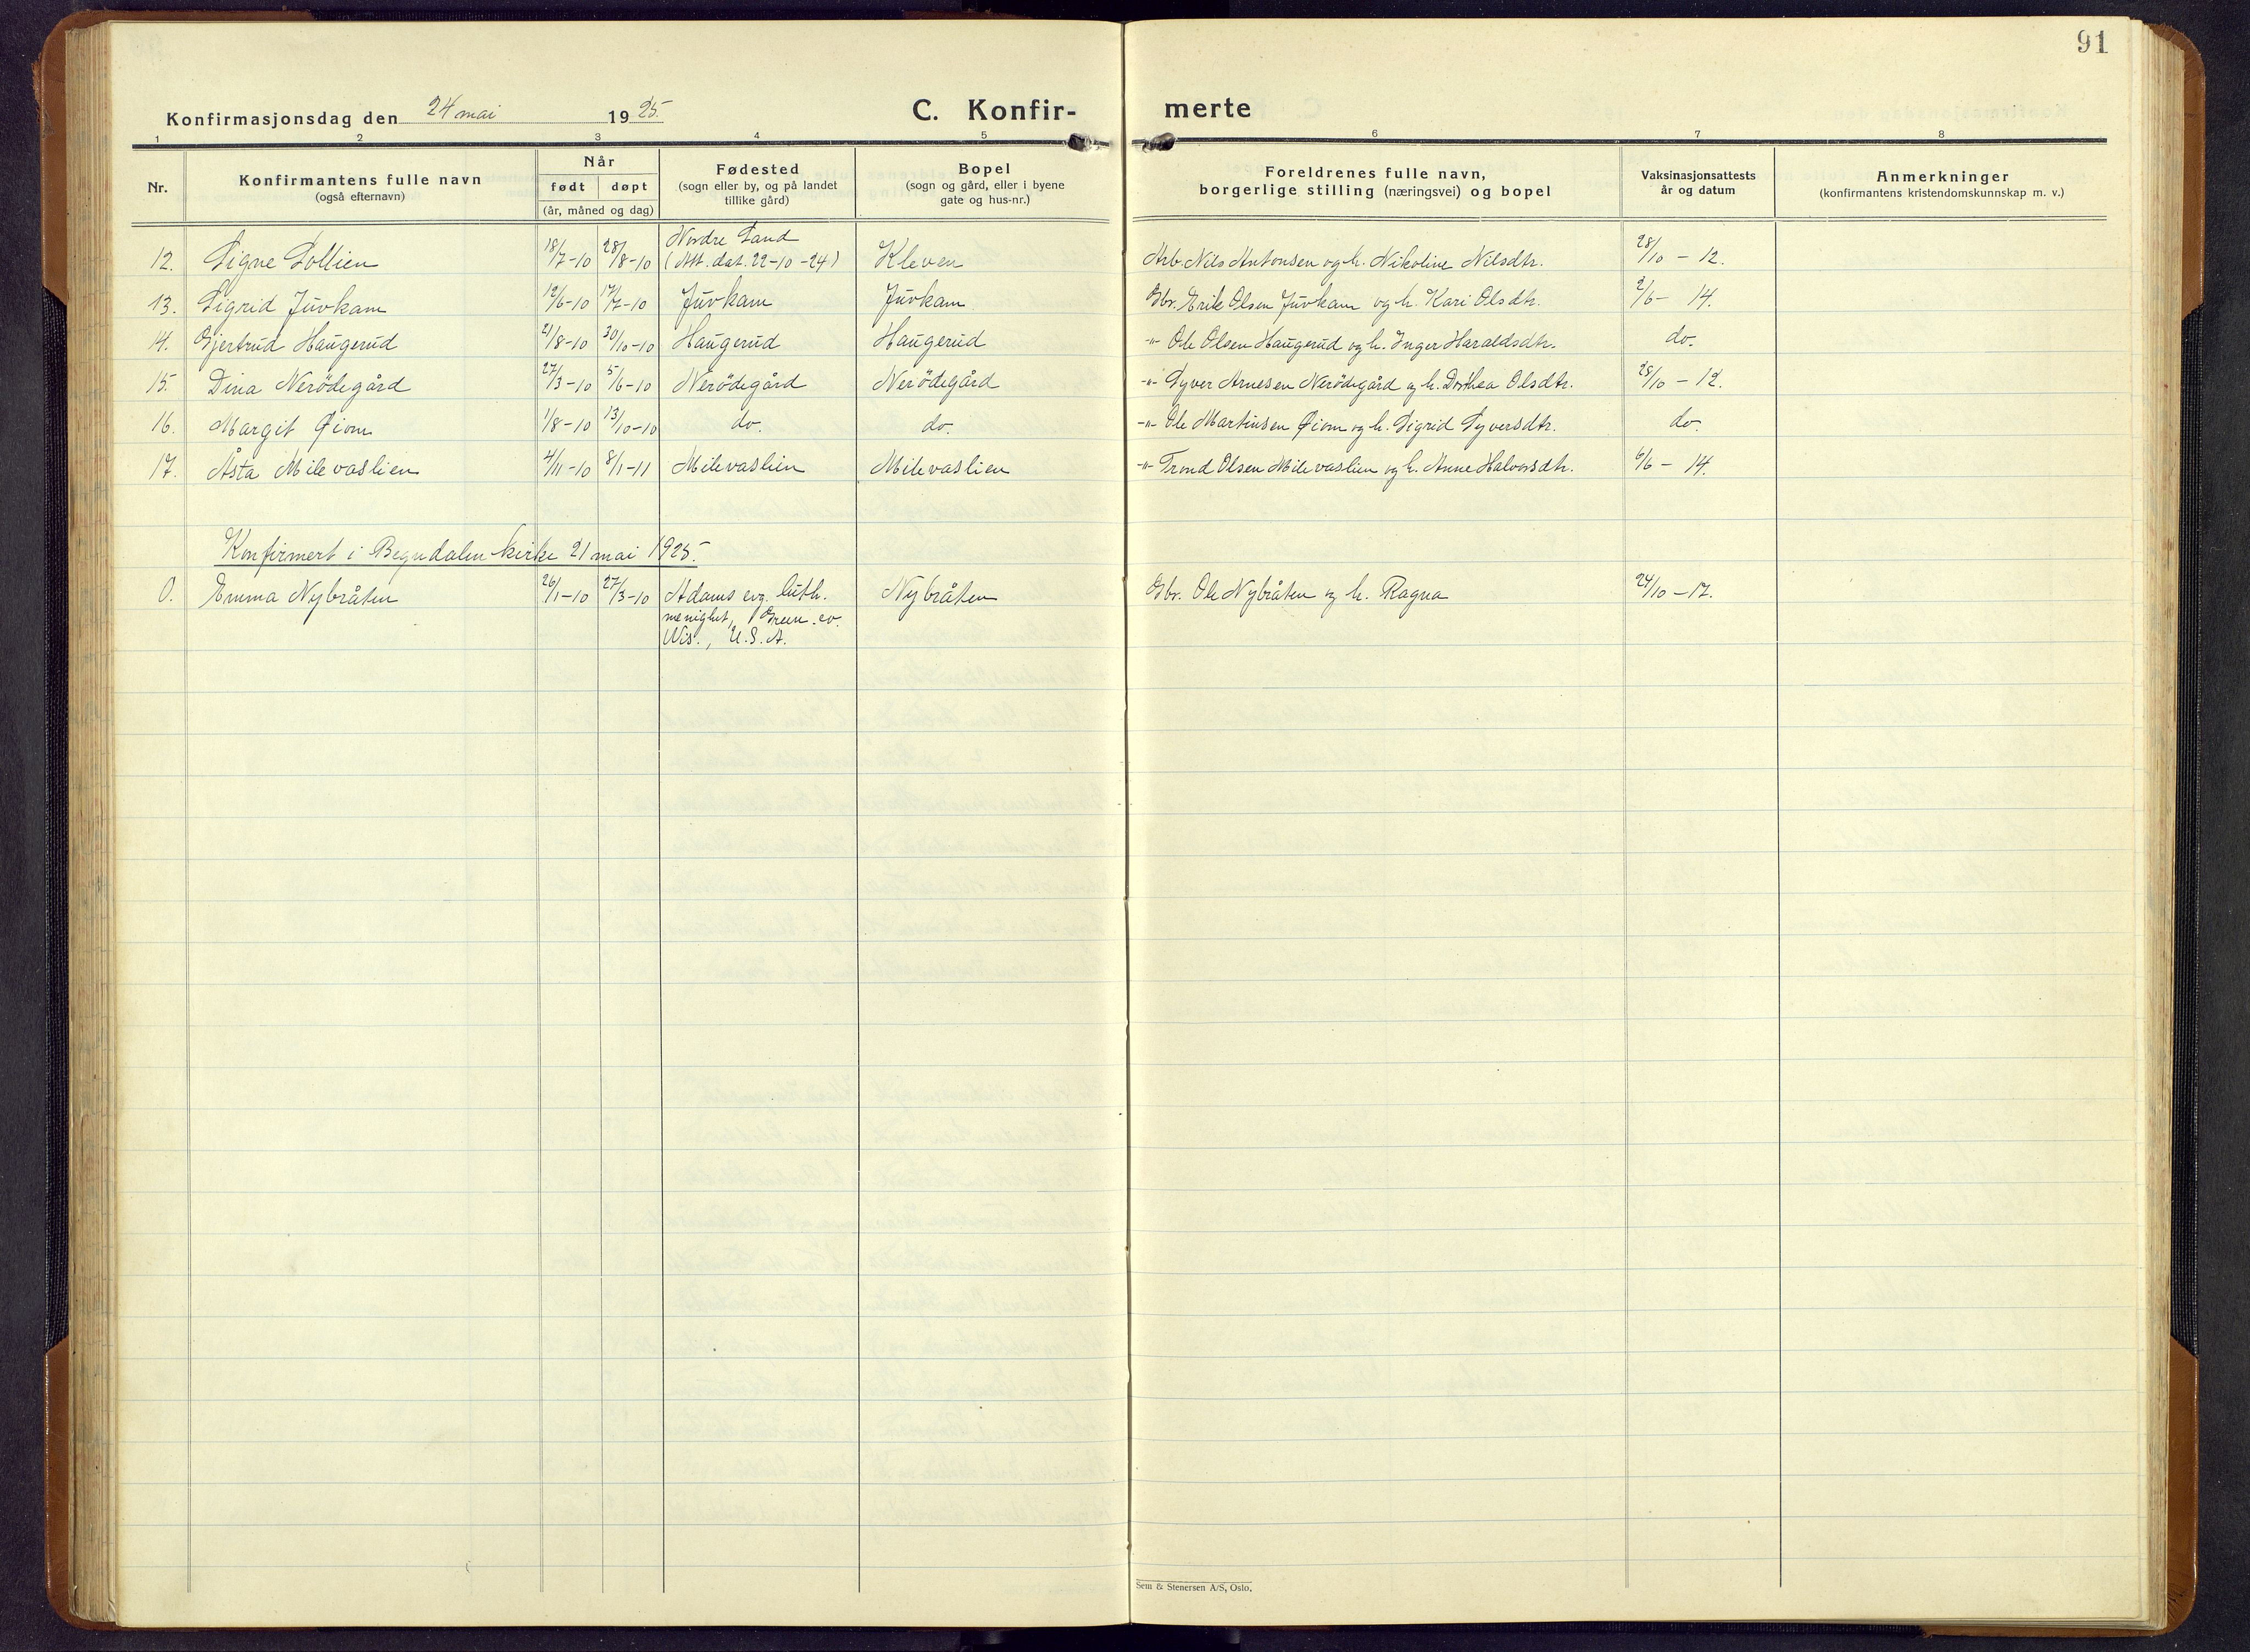 91
Konfirmasjonsdag den 24 mai 1925.
C. Konfir-
merte
1 2 3 4 5 6 7 8
Nr.
Konfirmantens fulle navn
(også efternavn)
Når
født døpt
(år, måned og dag)
Fødested
(sogn eller by, og på landet
tillike gård)
Bopel
(sogn og gård, eller i byene
gate og hus-nr.)
Foreldrenes fulle navn,
borgerlige stilling (næringsvei) og bopel
Vaksinasjonsattests
år og datum
Anmerkninger
(konfirmantens kristendomskunnskap m. v.)
12. Signe Sollien 18/7-10 28/8-10 Nordre Land (Att. dat. 22-10-24) Kleven Arb. Nils Antonsen og h. Nikoline Nilsdtr. 28/10 - 12.
13. Sigrid Juvkam 12/6-10 17/7-10 Juvkam Juvkam Gbr. Erik Olsen Juvkam og h. Kari Olsdtr. 2/6 - 14.
14. Gjertrud Haugerud 21/8-10 30/10-10 Haugerud Haugerud -"- Ole Olsen Haugerud og h. Inger Haraldsdtr. do.
15. Dina Nerödegård 27/3-10 5/6-10 Nerödegård Nerödegård -"- Syver Arnesen Nerödegård og h. Dorthea Olsdtr. 28/10 - 12.
16. Margit Øiom 1/8-10 13/10-10 do. do. -"- Ole Martinsen Øiom og h. Sigrid Syversdtr. do.
17. Åsta Milevaslien 4/11-10 8/1-11 Milevaslien Milevaslien -"- Trond Olsen Milevaslien og h. Anne Halvorsdtr. 6/6 - 14.
Konfirmert i Begndalen kirke 21 mai 1925.
0. Emma Nybråten 26/1-10 27/3-10 Adams evg. luth. Nybråten Gbr. Ole Nybråten og h. Ragna 24/10 - 17.
menighet, Green. co.
Wis., U.S.A.
Sem & Stenersen A/S, Oslo.